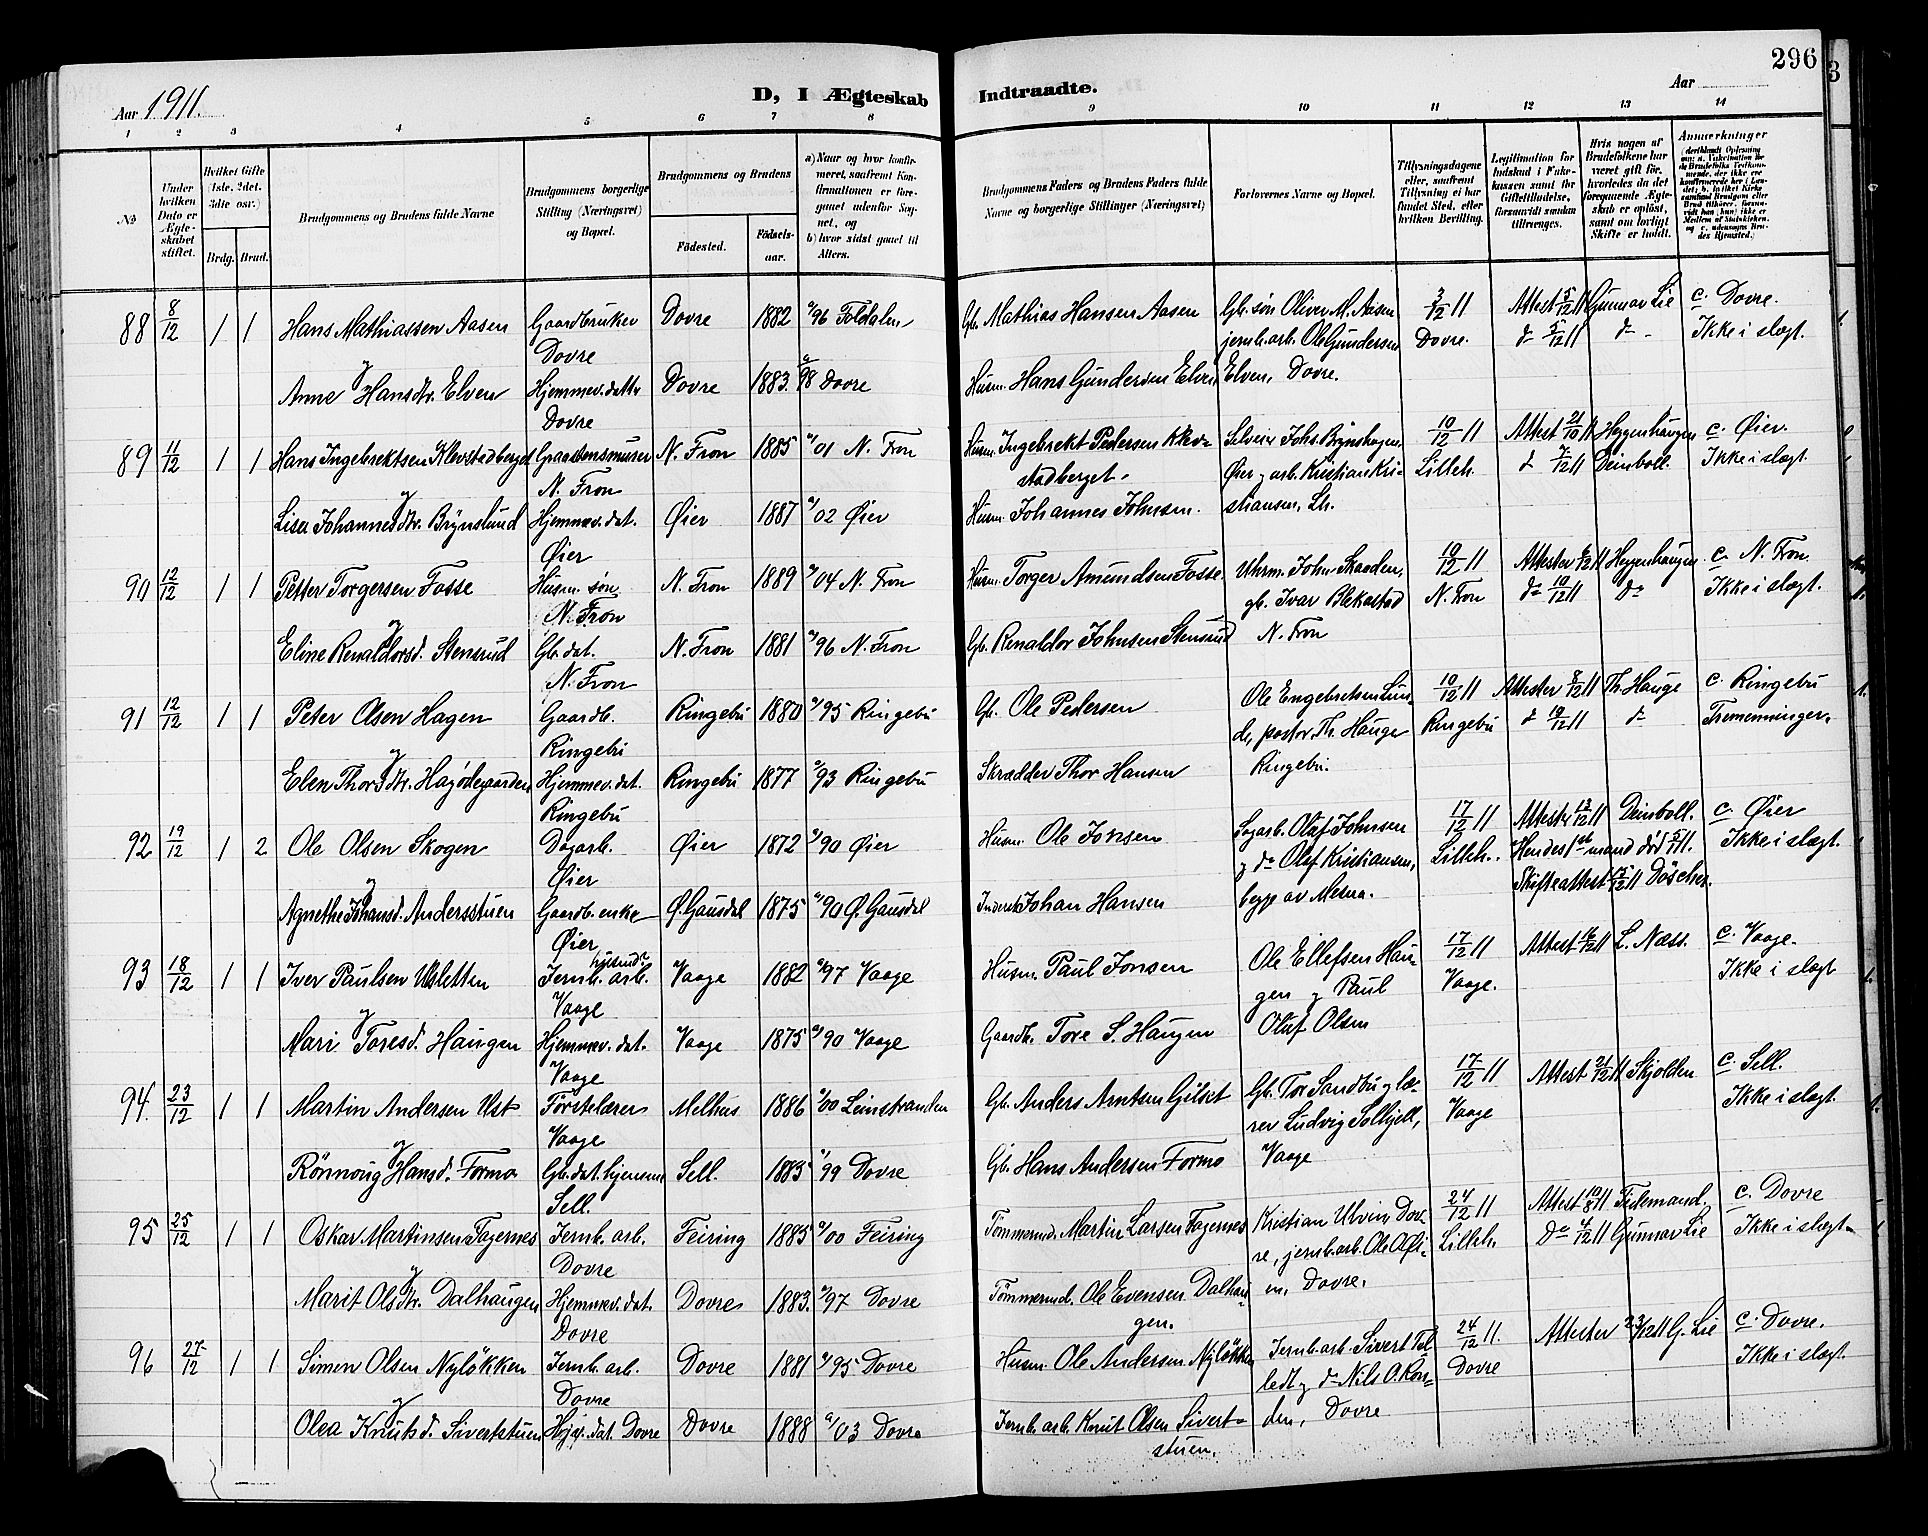 296
3
Aar 1911.
D, I Ægteskab Indtraadte.
Aar
1 2 3 4 5 6 7 8 9 10 11 12 13 14
No
Under hvilken Dato er Ægteskabet stiftet.
Hvilket Gifte (1ste, 2det, 3die osv.)
Brdg. Brud.
Brudgommens og Brudens fulde Navne
Brudgommens borgerlige Stilling (Næringsvei) og Bopæl.
Brudgommens og Brudens
Födested. Födselsaar.
a) Naar og hvor konfirmeret, saafremt Konfirmationen er foregaaet udenfor Sognet, og
b) hvor sidst gaaet til Alters.
Brudgommens Faders og Brudens Faders fulde Navne og borgerlige Stillinger (Næringsvei)
Forlovernes Navne og Bopæl.
Tillysningsdagene eller, saafremt Tillysning ei har fundet Sted, efter hvilken Bevilling.
Legitimation for Indskud i Enkekassen samt for Giftetilladelse, forsaavidt saadan tiltrænges.
Hvis nogen af Brudefolkene har været gift för, hvorledes da det foregaaende Ægteskab er oplöst, samt om lovligt Skifte er holdt.
Anmærkninger
88 8/12 1 1 Hans Mathiassen Aasen Gaardbruker Dovre 1882 96 Foldalen Gb. Mathias Hansen Aasen Gb. søn Oliver M. Aasen 3/12 11 Attest 5/12 11 Gunnar Lie c. Dovre.
Dovre jernb.arb. Ole Gundersen Dovre. do 5/12 11 do Ikke i slægt.
og
Anne Hansdtr. Elven Hjemmev. datter Dovre 1883. 98 Dovre Husm. Hans Gundersen Elven Elven, Dovre.
Dovre
89 11/12 1 1 Hans Ingebrektsen Klevstadberget N. Fron 1885 01 N. Fron Husm. Ingebrekt Pedersen Klevstadberget Selveier Johs. Brynshagen, 10/12 11 Attest 21/10 11 Heggenhaugen c. Øier.
N. Fron Øier og arb. Kristian Kristiansen, Lh. Lilleh. d 7/12 11 Deinboll. Ikke i slægt.
og
Lisa Johannesdtr. Brynslund Hjemmev. dat. Øier 1887 02 Øier Husm. Johannes Johnsen.
Øier
90 12/12 1 1 Petter Torgersen Fosse Husm. søn N. Fron 1889 04 N. Fron Husm. Torger Amundsen Fosse. Uhrm. John Skaaden, 10/12 11 Attester 6/12 11 Heggenhaugen c. N. Fron
N. Fron gb. Ivar Blekastad N. Fron do 10/12 11 do Ikke i slægt.
og
Eline Renaldorsd. Stensrud Gb. dat. N. Fron 1881 96 N. Fron Gb. Renaldor Johnsen Stensrud N. Fron
N. Fron
91 12/12 1 1 Peter Olsen Hagen Gaardb. Ringebu 1880 95 Ringebu Gb. Ole Pedersen Ole Engebretsen Lunde, 10/12 11 Attester 8/12 11 Th. Hauge c. Ringebu
Ringebu pastor Th. Hauge Ringebu d 10/12 11 do Tremenninger.
og
Elen Thorsdtr. Hagødegaarden Hjemmev. dat. Ringebu 1877 93 Ringebu Skrædder Thor Hansen Ringebu.
Ringebu
92 19/12 1 2 Ole Olsen Skogen Dagarb. Øier 1872 90 Øier Husm. Ole Jonsen Sagarb. Olaf Johnsen 17/12 11 Attester 13/12 11 Deinboll. c. Øier
Øier og do Olaf Kristiansen, Lilleh. Hendes 1st mand død 11. Ikke i slægt.
og
Agnethe Johansd. Andersstuen Gaardb. enke Ø. Gausdal 1875 90 Ø. Gausdal Johan Hansen begge av Mesna. Skifteattest 11
Øier
93 18/12 1 1 Iver Paulsen Usletten Jernb. arb. Vaage 1882 97 Vaage Husm. Paul Jonsen Ole Ellefsen Haugen 17/12 11 Attest 16/12 11 L. Næss. c. Vaage.
Vaage og Paul Vaage. Ikke i slægt
og
Mari Toresd. Haugen Hjemmev. dat. Vaage 1875 90 Vaage Gaardb. Tore S. Haugen Olaf Olsen
Vaage
94. 23/12 1 1 Martin Andersen Ust Førstelærer Melhus 1886 00 Leinstranden Gb. Anders Arntsen Gilset Gb. Tor Sandbu og lærer 17/12 11 Attest 21/12 11 Skjolden c. Sell.
Vaage Ludvig Solhjell, Vaage Ikke i slægt.
og
Rønnoug Hansd. Formo Gb. dat. hjemme Sell. 1883 99 Dovre Gb. Hans Andersen Formo Vaage
Sell.
95 25/12 1 1 Oskar Martinsen Fagernes Jernb. arb. Feiring 1885 00 Feiring Tømmermd. Martin Larsen Fagernes Kristian Ulvin, Dovre, 24/12 11 Attest 10/8 11 Tidemand. c. Dovre
Dovre jernb.arb. Ole Lilleh. Do 4/12 11 Gunnar Lie Ikke i slægt
og
Marit Olsdtr. Dalhaugen Hjemmev. dat. Dovre 1883. 97 Dovre Tømmermd. Ole Evensen Dalhaugen. Dovre.
Dovre
96 27/12 1 1 Simen Olsen Nyløkken Jernb. arb. Dovre 1881 95 Dovre Husm. Ole Andersen Nyløkken Jernb. arb. Sivert 24/12 11. Attester 23/12 11 G. Lie c. Dovre.
Dovre og do Nils O. Dovre Ikke i slægt.
og
Olea Knutsd. Sivertstuen Hjv. dat. Dovre Dovre 1888 03 Dovre Jernb. arb. Knut Olsen Sivertstuen. Dovre